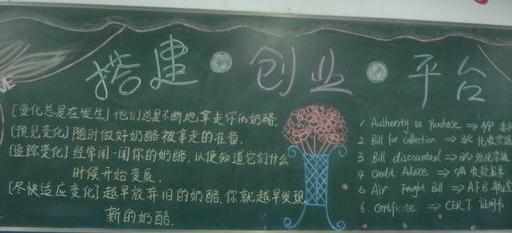 搭建·创业·平台
[变化总是在发生]他们总是不断地拿走你的奶酪.
[预见变化]随时做好奶酪被拿走的准备.
[追踪变化]经常闻一闻你的奶酪,以便知道它们什么
时候开始变质.
[尽快适应变化]越早放弃旧的奶酪,你就越早发现
新的奶酪.
1. Authority to Purchase ⇒ A/P
2. Bill for Collection ⇒ B/C
3. Bill discounted ⇒ B/D
4. Credit Advice ⇒
5. Air Freight Bill ⇒ A.F.B
6. Certificate ⇒ CERT 证明书